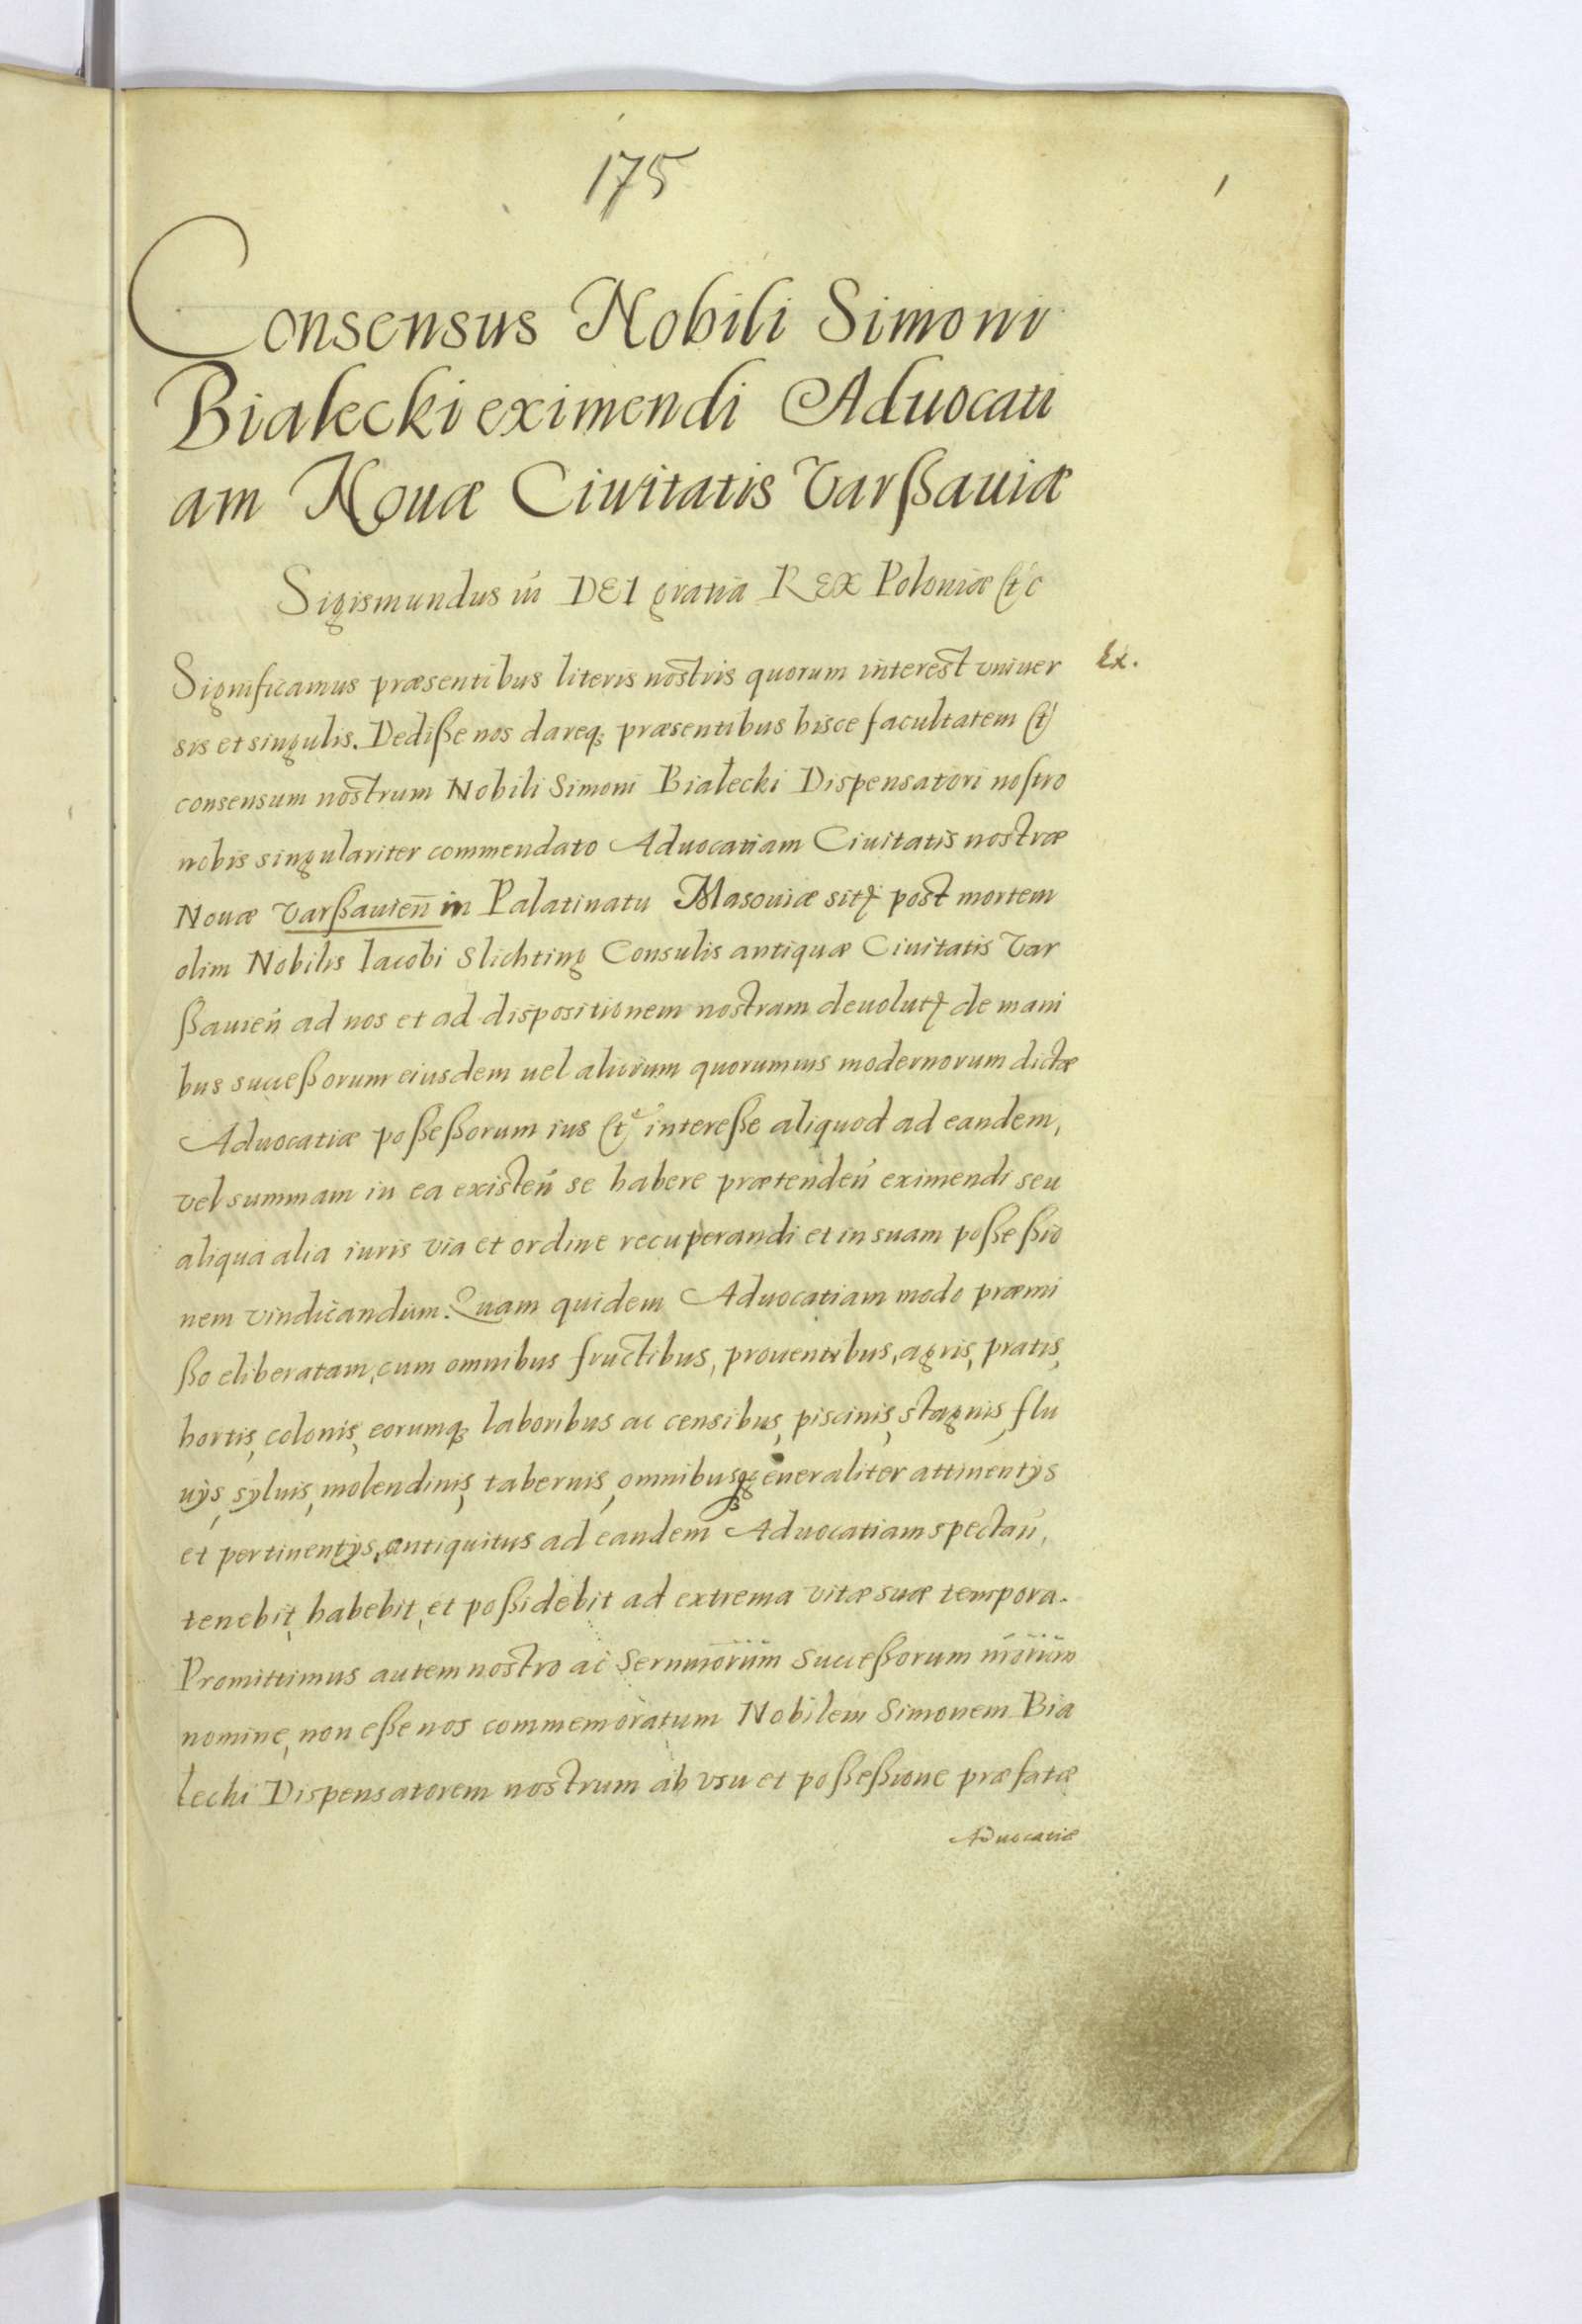 175
1
Consensus Nobili Simoni
Bialecki eximendi Aduocati
am Nouæ Ciuitatis Varßauiæ
Sigismundus iii DEI gratia REX Poloniæ etc
Significamus præsentibus literis nostris quorum interest vniuer
Ex.
sis et singulis. Dediße nos dareq; præsentibus hisce facultatem et
consensum nostrum Nobili Simoni Białecki Dispensatori nostro
nobis singulariter commendato Aduocatiam Ciuitatis nostræ
Nouæ Varßauień in Palatinatu Masouiæ sitę post mortem
olim Nobilis Iacobi Slichting Consulis antiquæ Ciuitatis Var
ßauień ad nos et ad dispositionem nostram deuolutę de mani
bus succeßorum eiusdem uel aliorum quorumuis modernorum dictæ
Aduocatiæ poßeßorum ius et intereße aliquod ad eandem,
vel summam in ea existeń se habere prætendeń eximendi seu
aliqua alia iuris via et ordine recuperandi et in suam poßeßio
nem vindicandum. Quam quidem Aduocatiam modo præmi
ßo eliberatam, cum omnibus fructibus, prouentibus, agris, pratis,
hortis, colonis, eorumq; laboribus ac censibus, piscinis, stagnis, flu
uÿs, syluis, molendinis, tabernis, omnibusq; generaliter attinentÿs
et pertinentÿs, antiquitus ad eandem Aduocatiam spectań,
tenebit, habebit, et poßidebit ad extrema vitæ suæ tempora.
Promittimus autem nostro ac Sernmorum Succeßorum nrorum
nomine, non eße nos commemoratum Nobilem Simonem Bia
lecki Dispensatorem nostrum ab vsu et poßeßione præfatæ
Aduocatiæ